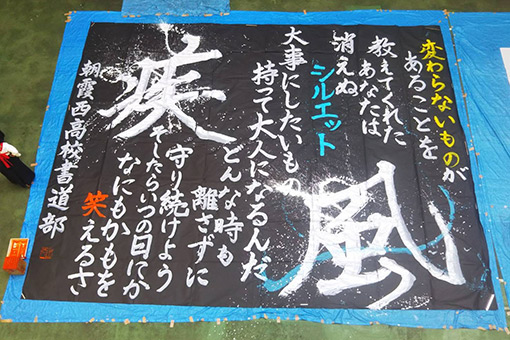 変わらないものが
あることを
教えてくれた
あなたは
消えぬ
シルエット
大事にしたいもの
持って大人になるんだ
どんな時も
離さずに
守り続けよう
そしたらいつの日にか
なにもかもを
笑えるさ
疾
風
朝霞西高校書道部